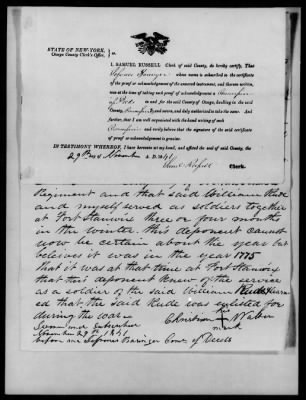 STATE OF NEW-YORK,
Otsego County Clerk's Office, ss.
I, SAMUEL RUSSELL Clerk of said County, do hereby certify, That
whose name is subscribed to the certificate
of the proof or acknowledgment of the annexed instrument, and therein written, was
at the time of taking such proof or acknowledgment a Commissioner
of Deeds in and for said County of Otsego, dwelling in the said
County, Commissioned and sworn, and duly authorized to take the same. And
further, that I am well acquainted with the hand writing of such
Commissioner and verily believe that the signature of the said certificate
of proof or acknowledgment is genuine.
IN TESTIMONY WHEREOF, I have hereunto set my hand, and affixed the seal of the said County, the
29th day of November A.D. 1841
Clerk.
Regiment and that said William Rude
and myself served as soldiers together
at Fort Stanwix three or four months
in the winter. This deponent cannot
now be certain about the year but
beleives it was in the year 1775
that it was at that time at Fort Stanwix
that this deponent knew of the service
as a soldier of the said William Rude & learn
ed that, the said Rude was enlisted for
during the war
Christian his Walter
mark
Sworn and Subscribed
November 29th 1841
before me Com. of Deeds